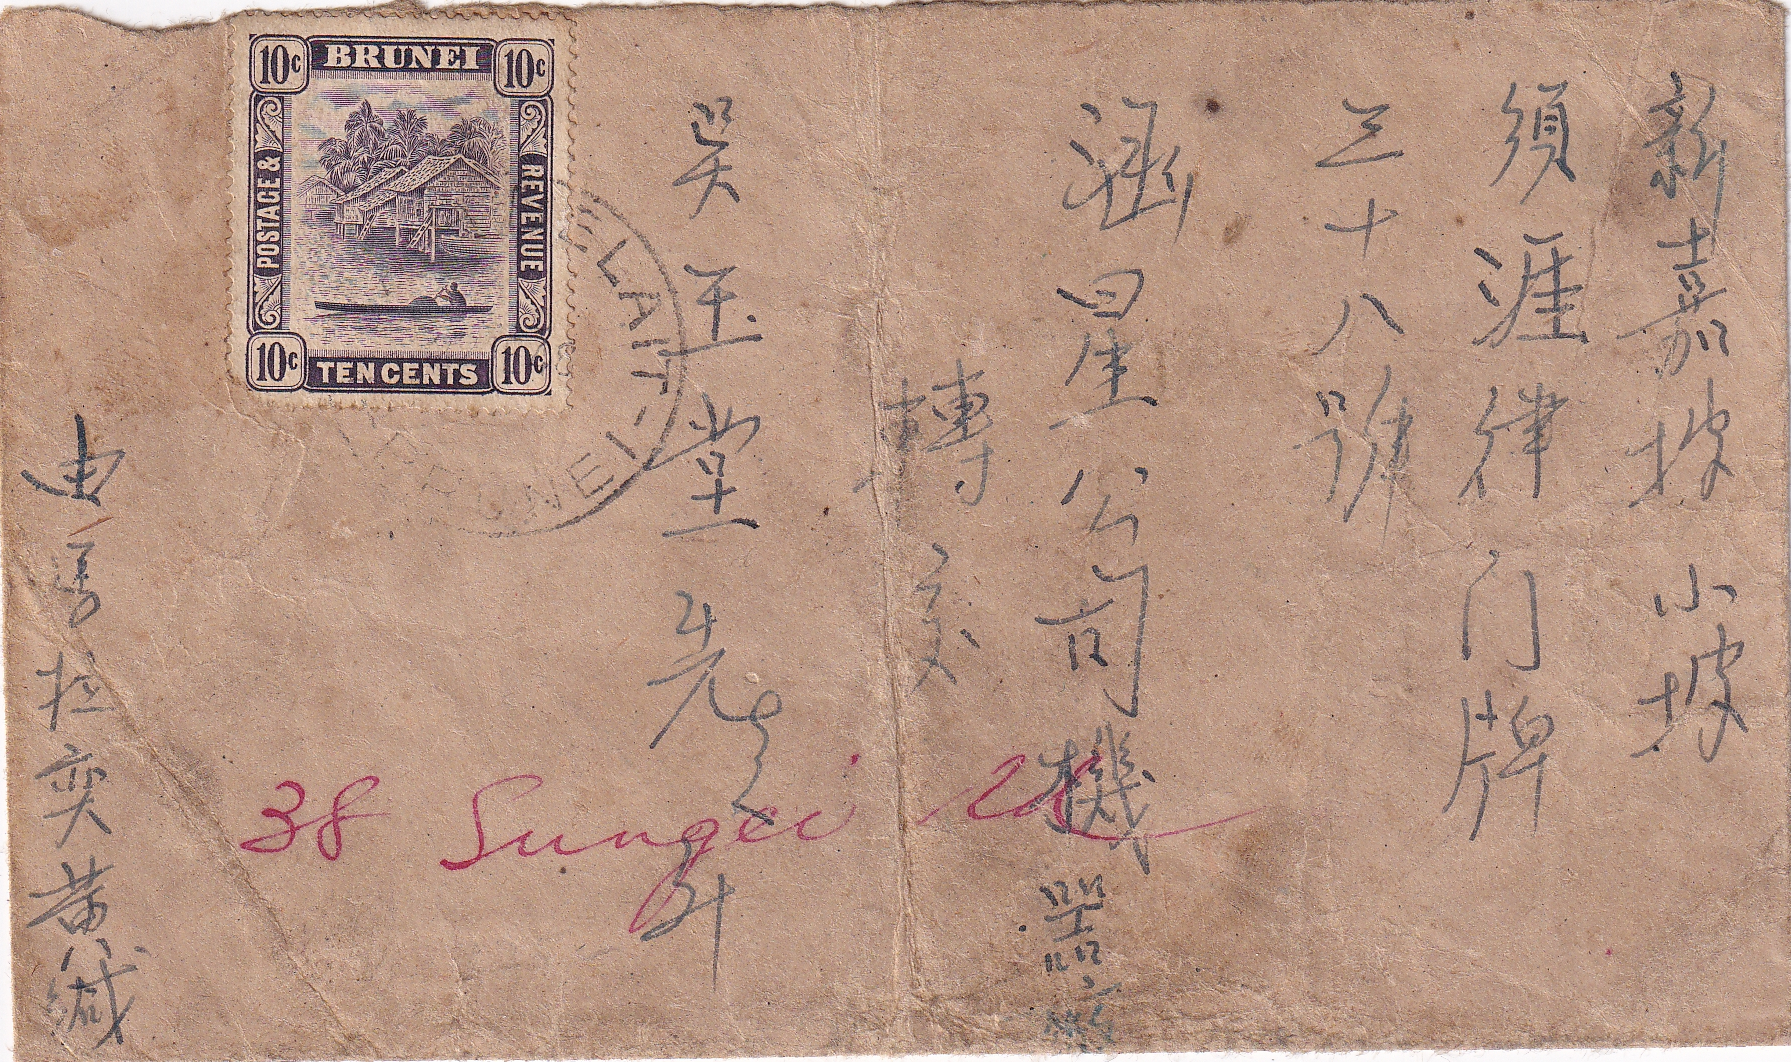 新嘉坡小坡
須涯律门牌
三十八號
涵星公司機器廠
轉交
吴玉堂先生升
由馬拉奕黄緘
38 Sungei Rd
10c BRUNEI 10c
POSTAGE & REVENUE
10c TEN CENTS 10c
BELAIT
BRUNEI